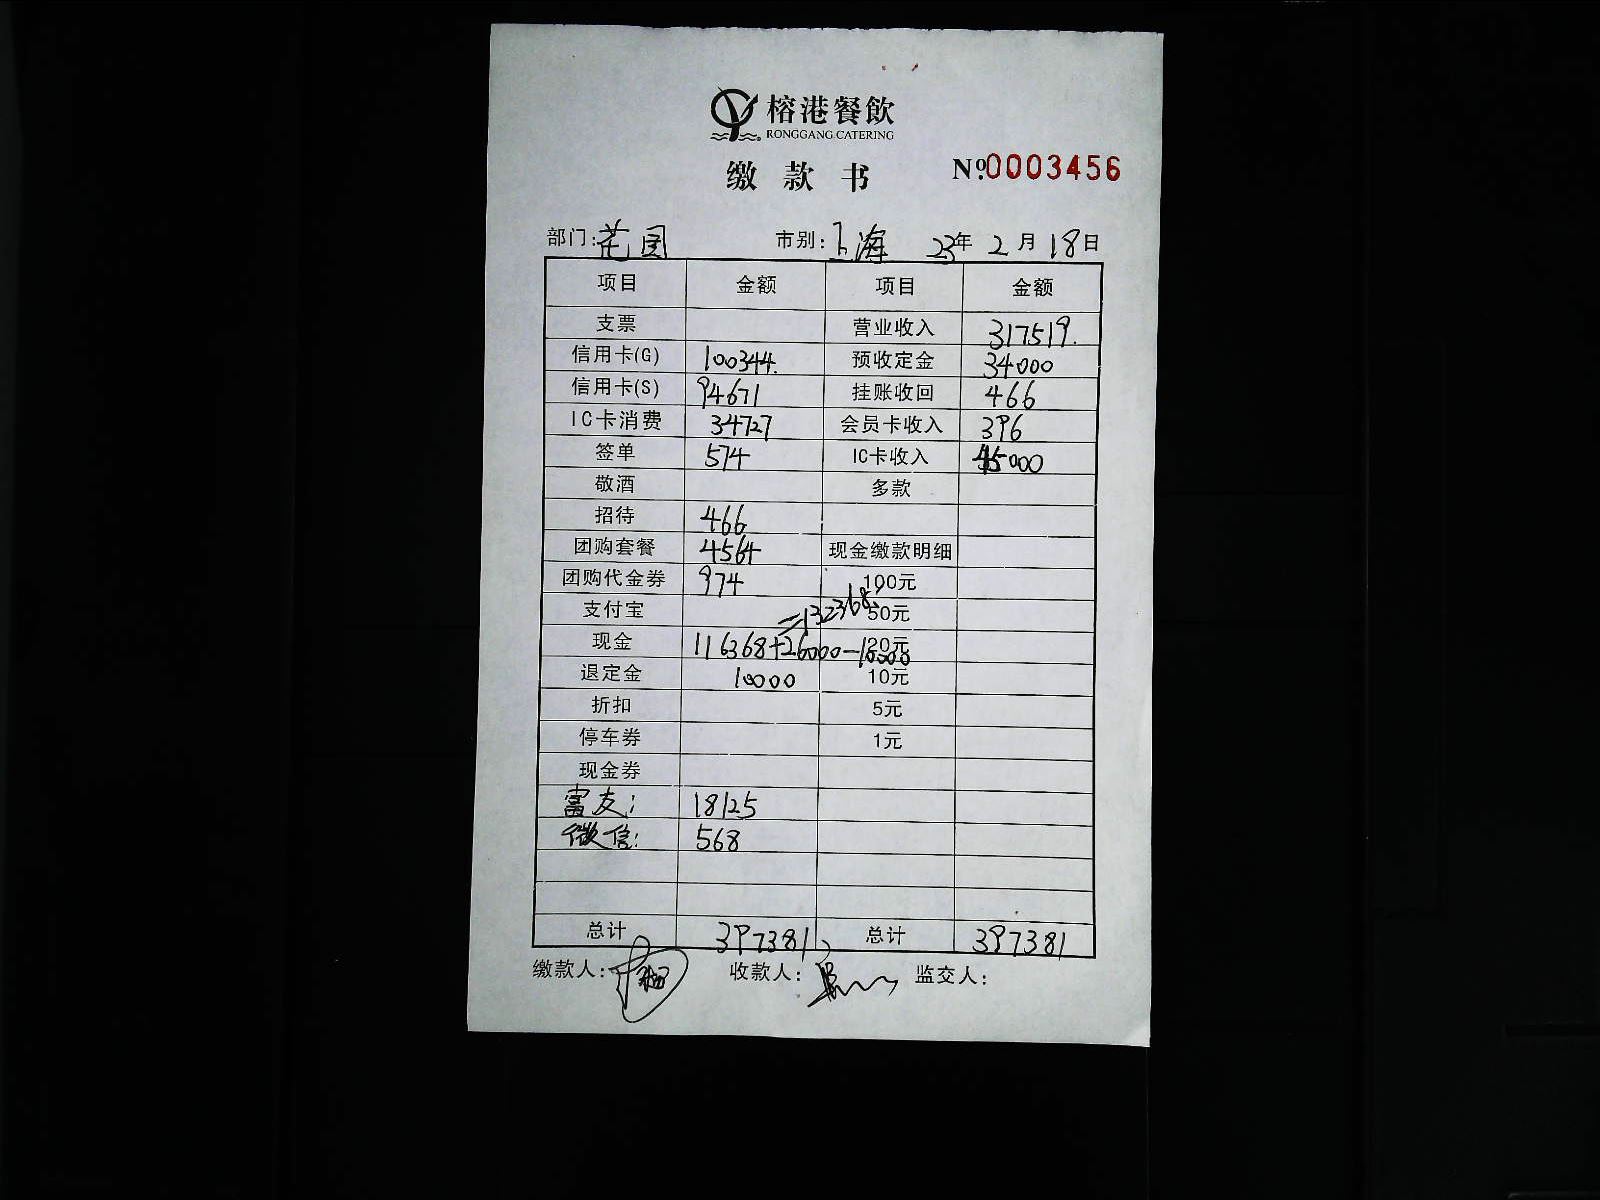 榕港餐飲
RONGGANG CATERING
缴款书 Nº.0003456
部门：花园 市别：上海 23年 2月 18日
项目 金额 项目 金额
支票 营业收入 317519.
信用卡(G) 100344. 预收定金 34000
信用卡(S) 94671 挂账收回 466
IC卡消费 34727 会员卡收入 396
签单 574 IC卡收入 45000
敬酒 多款
招待 466
团购套餐 4564 现金缴款明细
团购代金券 974 100元
支付宝 =132368. 50元
现金 116368+26000-10000 20元
退定金 10000 10元
折扣 5元
停车券 1元
现金券
富友： 18125
微信： 568
总计 397381 总计 397381
缴款人： 收款人： 监交人：